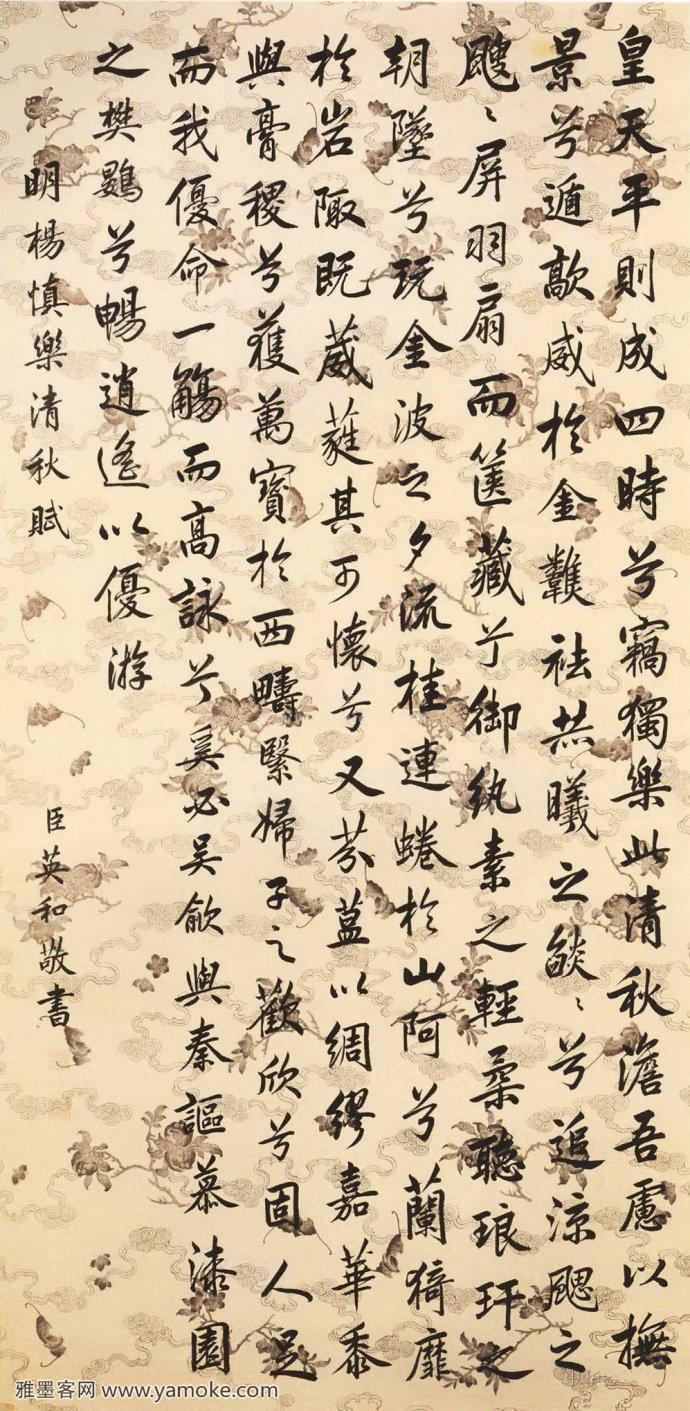 皇天平則成四時兮竊獨樂此清秋澹吾慮以撫
景兮遁歊威於金囏祛炎曦之燄〻兮追涼颸之
颼〻屏羽扇而篋藏兮御紈素之輕柔聽琅玕之
朝墜兮玩金波之夕流桂連蜷於山阿兮蘭猗靡
於岩陬既葳蕤其可懷兮又芬薀以綢繆嘉華黍
與膏稷兮獲萬寶於西疇繄婦子之歡欣兮固人足
而我優命一觴而高詠兮奚必吳歈與秦謳慕漆園
之樊鷃兮暢逍遙以優游
明楊慎樂清秋賦
臣英和敬書
雅墨客网 www.yamoke.com